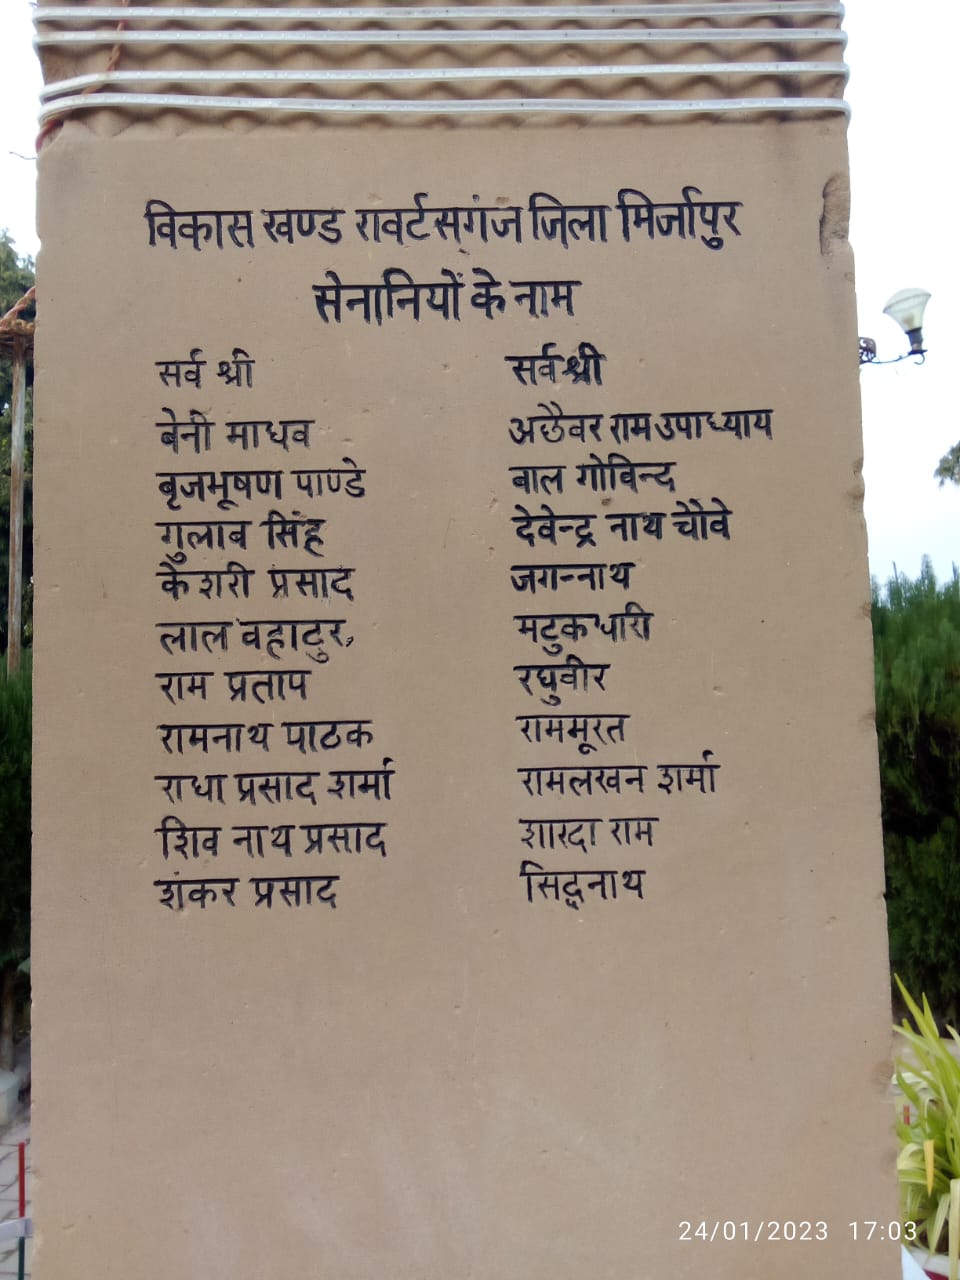 विकास खण्ड रावर्टसगंज जिला मिर्जापुर
सेनानियों के नाम
सर्व श्री
बेनी माधव
बृजभूषण पाण्डे
गुलाब सिंह
केशरी प्रसाद
लाल वहादुर,
राम प्रताप
रामनाथ पाठक
राधा प्रसाद शर्मा
शिव नाथ प्रसाद
शंकर प्रसाद
सर्वश्री
अछैवर राम उपाध्याय
बाल गोविन्द
देवेन्द्र नाथ चौवे
जगन्नाथ
मटुकधारी
रघुवीर
राममूरत
रामलखन शर्मा
शारदा राम
सिद्धनाथ
24/01/2023 17:03